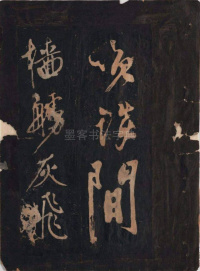 笑談間
檣艣灰飛
墨客书法字画